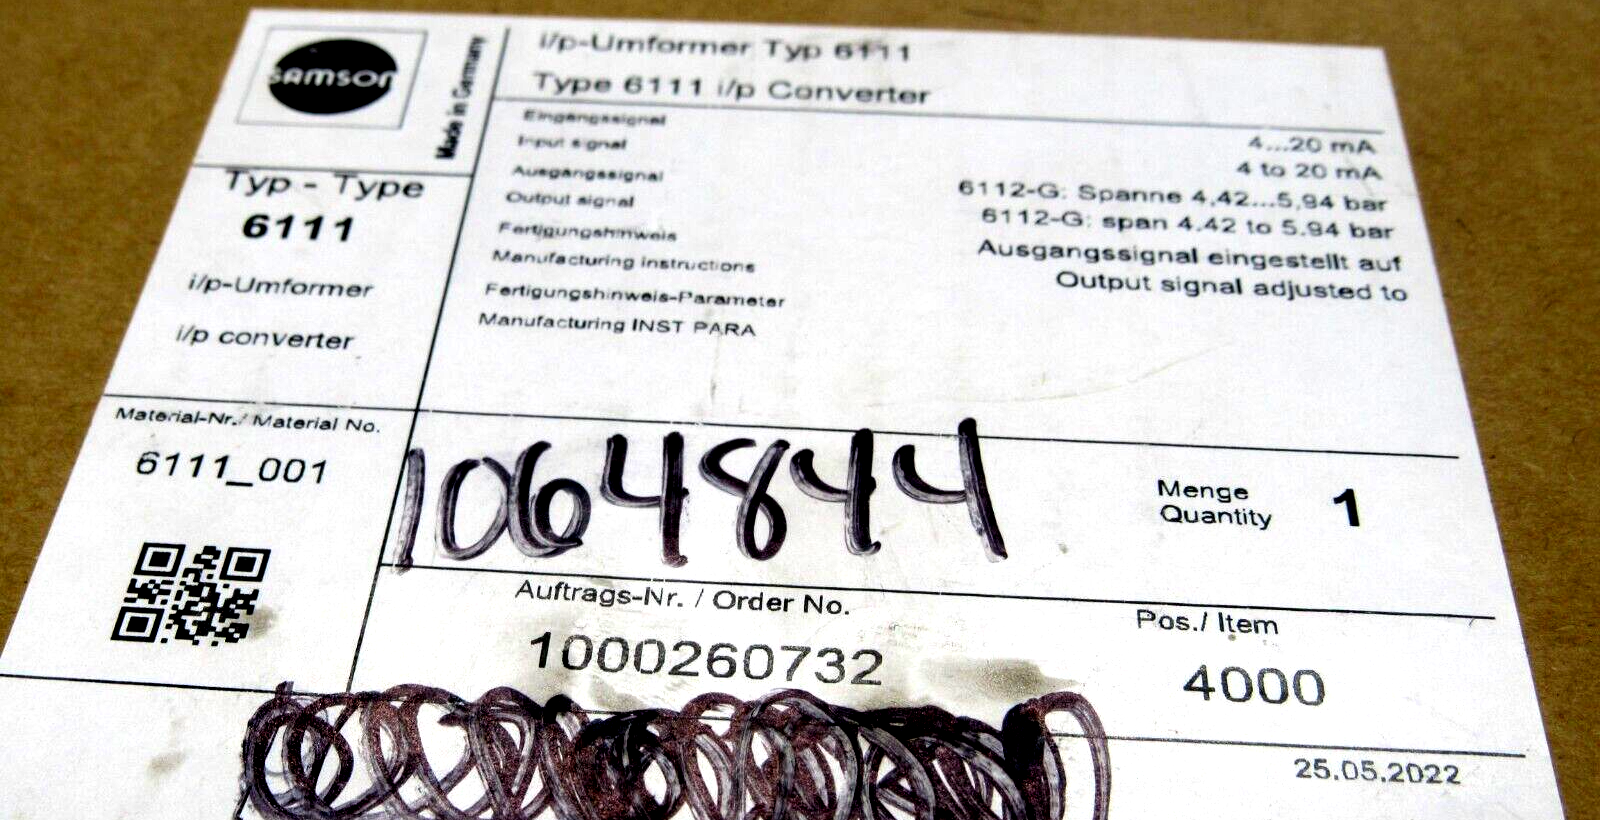 SAMSON
Made in Germany
i/p-Umformer Typ 6111
Type 6111 i/p Converter
Typ - Type
6111
i/p-Umformer
i/p converter
Eingangssignal 4...20 mA
Input signal 4 to 20 mA
Ausgangssignal 6112-G: Spanne 4,42...5,94 bar
Output signal 6112-G: span 4.42 to 5.94 bar
Fertigungshinweis Ausgangssignal eingestellt auf
Manufacturing instructions Output signal adjusted to
Fertigungshinweis-Parameter
Manufacturing INST PARA
Material-Nr./ Material No.
6111_001
1064844
Menge
Quantity 1
Auftrags-Nr. / Order No.
1000260732
Pos./ Item
4000
25.05.2022